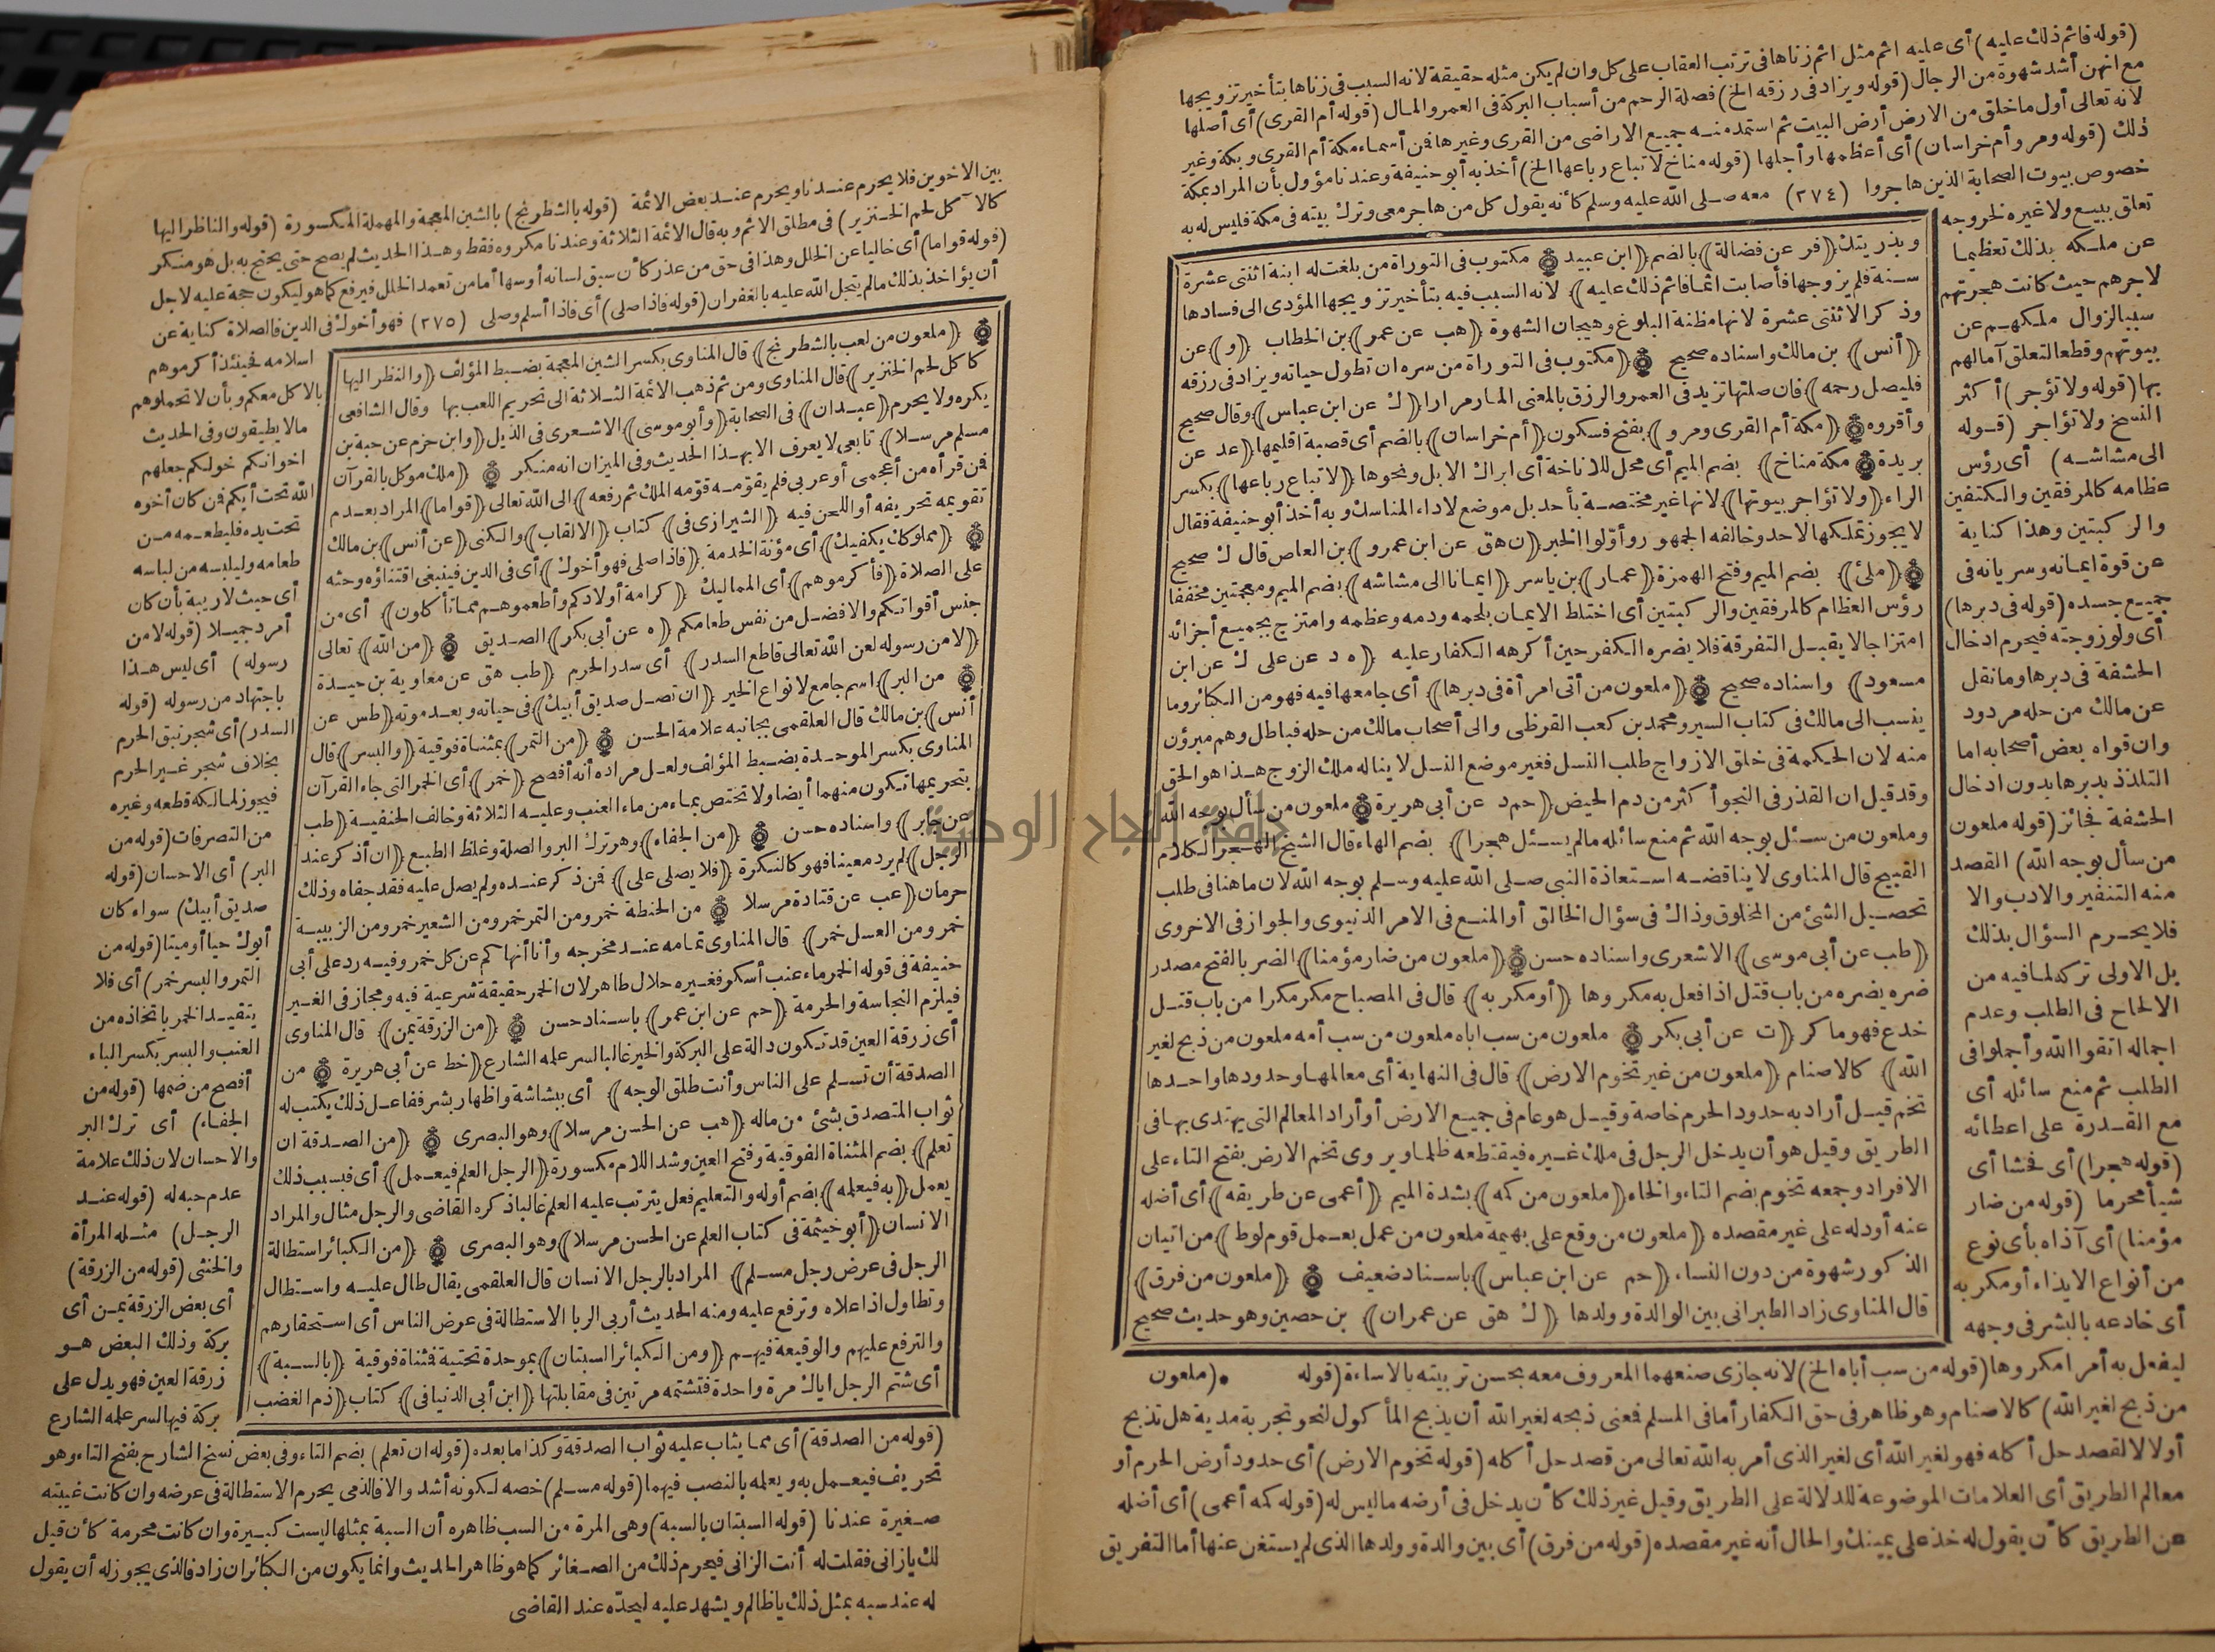 (قوله فاثم ذلك عليه) أى عليه اثم مثل اثم زناها فى ترتب العقاب على كل وان لم يكن مثله حقيقة لانه السبب فى زناها بتأخير تزويجها
مع انهن أشد شهوة من الرجال (قوله ويزاد فى رزقه الخ) فصلة الرحم من أسباب البركة فى العمر والمال (قوله أم القرى) أى أصلها
لانه تعالى أول ما خلق من الارض أرض البيت ثم استمد منه جميع الاراضى من القرى وغيرها فن أسماء مكة أم القرى وبكة وغير
ذلك (قوله ومرو أم خراسان) أى أعظمها وأجلها (قوله مناخ لا تباع رباعها الخ) أخذ به أبو حنيفة وعندنا مؤول بأن المراد بمكة
خصوص بيوت الصحابة الذين هاجروا (٣٧٤) معه صلى الله عليه وسلم كأنه يقول كل من هاجر معى وترك بيته فى مكة فليس له به
تعلق ببيع ولا غيره لخروجه
عن ملكه بذلك تعظيما
لاجرهم حيث كانت هجرتهم
سببا لزوال ملكهم عن
بيوتهم وقطعا لتعلق آمالهم
بها (قوله ولا تؤجر) أكثر
النسخ ولا تؤاجر (قوله
الى مشاشه) أى رؤس
عظامه كالمرفقين والكتفين
والركبتين وهذا كناية
عن قوة ايمانه وسريانه فى
جميع جسده (قوله فى دبرها)
أى ولو زوجته فيحرم ادخال
الحشفة فى دبرها وما نقل
عن مالك من حله مردود
وان قواه بعض أصحابه اما
التلذذ بدبرها بدون ادخال
الحشفة فجائز (قوله ملعون
من سأل بوجه الله) القصد
منه التنفير والادب والا
فلا يحرم السؤال بذلك
بل الاولى تركه لما فيه من
الالحاح فى الطلب وعدم
اجماله اتقوا الله وأجملوا فى
الطلب ثم منع سائله أى
مع القدرة على اعطائه
(قوله هجرا) أى فحشا أى
شيأ محرما (قوله من ضار
مؤمنا) أى آذاه بأى نوع
من أنواع الايذاء أو مكر به
أى خادعه بالبشر فى وجهه
وبذريتك (فر عن فضالة) بالضم (ابن عبيد) مكتوب فى التوراة من بلغت له ابنة اثنتى عشرة
سنة فلم يزوجها فأصابت اثما فاثم ذلك عليه) لانه السبب فيه بتأخير تزويجها المؤدى الى فسادها
وذكر الاثنتى عشرة لانها مظنة البلوغ وهيجان الشهوة (هب عن عمر) بن الخطاب (و) عن
(أنس) بن مالك واسناده صحيح (مكتوب فى التوراة من سره ان تطول حياته ويزاد فى رزقه
فليصل رحمه) فان صلتها تزيد فى العمر والرزق بالمعنى المار مرارا (ك عن ابن عباس) وقال صحيح
وأقروه (مكة أم القرى ومرو) بفتح فسكون (أم خراسان) بالضم أى قصبة اقليمها (عد عن
بريدة مكة مناخ) بضم الميم أى محل للاناخة أى ابراك الابل ونحوها (لا تباع رباعها) بكسر
الراء (ولا تؤاجر بيوتها) لانها غير مختصة بأحد بل موضع لاداء المناسك وبه أخذ أبو حنيفة فقال
لا يجوز تملكها لاحد وخالفه الجمهور وأولوا الخبر (ك هق عن ابن عمرو) بن العاص قال ك صحيح
(ملئ) بضم الميم وفتح الهمزة (عمار) بن ياسر (ايمانا الى مشاشه) بضم الميم ومعجمتين مخففا
رؤس العظام كالمرفقين والركبتين أى اختلط الايمان بلحمه ودمه وعظمه وامتزج بجميع أجزائه
امتزاجا لا يقبل التفرقة فلا يضره الكفر حين أكرهه الكفار عليه (ه د عن على ك عن ابن
مسعود) واسناده صحيح (ملعون من أتى امرأة فى دبرها) أى جامعها فيه فهو من الكبائر وما
ينسب الى مالك فى كتاب السير ومحمد بن كعب القرظى والى أصحاب مالك من حله فباطل وهم مبرؤن
منه لان الحكمة فى خلق الازواج طلب النسل فغير موضع النسل لا يناله ملك الزوج هذا هو الحق
وقد قيل ان القذر فى النجو أكثر من دم الحيض (حم د عن أبى هريرة ملعون من سأل بوجه الله
وملعون من سئل بوجه الله ثم منع سائله مالم يسئل هجرا) بضم الهاء قال الشيخ الهجر الكلام
القبيح قال المناوى لا يناقضه استعاذة النبى صلى الله عليه وسلم بوجه الله لان ما هنا فى طلب
تحصيل الشئ من المخلوق وذاك فى سؤال الخالق أو المنع فى الامر الدنيوى والجواز فى الاخروى
(طب عن أبى موسى) الاشعرى واسناده حسن (ملعون من ضار مؤمنا) الضر بالفتح مصدر
ضره يضره من باب قتل اذا فعل به مكروها (أو مكر به) قال فى المصباح مكر مكرا من باب قتل
خدع فهو ماكر (ت عن أبى بكر ملعون من سب اباه ملعون من سب أمه ملعون من ذبح لغير
الله) كالاصنام (ملعون من غير تخوم الارض) قال فى النهاية أى معالمها وحدودها واحدها
تخم قيل أراد به حدود الحرم خاصة وقيل هو عام فى جميع الارض أو أراد المعالم التى يهتدى بها فى
الطريق وقيل هو أن يدخل الرجل فى ملك غيره فيقتطعه ظلما ويروى تخم الارض بفتح التاء على
الافراد وجمعه تخوم بضم التاء والخاء (ملعون من كمه) بشدة الميم (أعمى عن طريقه) أى أضله
عنه أو دله على غير مقصده (ملعون من وقع على بهيمة ملعون من عمل بعمل قوم لوط) من اتيان
الذكور شهوة من دون النساء (حم عن ابن عباس) باسناد ضعيف (ملعون من فرق)
قال المناوى زاد الطبرانى بين الوالدة وولدها (ك هق عن عمران) بن حصين وهو حديث صحيح
ليفعل به أمرا مكروها (قوله من سب أباه الخ) لانه جازى صنعهما المعروف معه بحسن تربيته بالاساءة (قوله ملعون
من ذبح لغير الله) كالاصنام وهو ظاهر فى حق الكفار أما فى المسلم فعنى ذبحه لغير الله أن يذبح المأكول لنحو تجربة مدية هل تذبح
أولا لا لقصد حل أكله فهو لغير الله أى لغير الذى أمر به الله تعالى من قصد حل أكله (قوله تخوم الارض) أى حدود أرض الحرم أو
معالم الطريق أى العلامات الموضوعة للدلالة على الطريق وقيل غير ذلك كأن يدخل فى أرضه ما ليس له (قوله كمه أعمى) أى أضله
عن الطريق كأن يقول له خذ على يمينك والحال أنه غير مقصده (قوله من فرق) أى بين والدة وولدها الذى لم يستغن عنها أما التفريق
بين الاخوين فلا يحرم عندنا ويحرم عند بعض الائمة (قوله بالشطرنج) بالشين المعجمة والمهملة المكسورة (قوله والناظر اليها
كالآكل لحم الخنزير) فى مطلق الاثم وبه قال الائمة الثلاثة وعندنا مكروه فقط وهذا الحديث لم يصح حتى يحتج به بل هو منكر
(قوله قواما) أى خاليا عن الخلل وهذا فى حق من عذر كأن سبق لسانه أو سها أما من تعمد الخلل فيرفع كما هو ليكون حجة عليه لاجل
أن يؤاخذ بذلك مالم يتجل الله عليه بالغفران (قوله فاذا صلى) أى فاذا أسلم وصلى (٣٧٥) فهو أخوك فى الدين فالصلاة كناية عن
(ملعون من لعب بالشطرنج) قال المناوى بكسر الشين المعجمة بضبط المؤلف (والنظر اليها
كاكل لحم الخنزير) قال المناوى ومن ثم ذهب الائمة الثلاثة الى تحريم اللعب بها وقال الشافعى
يكره ولا يحرم (عبدان) فى الصحابة (وأبو موسى) الاشعرى فى الذيل (وابن حزم عن حبة بن
مسلم مرسلا) تابعى لا يعرف الا بهذا الحديث وفى الميزان انه منكر (ملك موكل بالقرآن
فن قرأه من أعجمى أو عربى فلم يقومه قومه الملك ثم رفعه) الى الله تعالى (قواما) المراد بعدم
تقويمه تحريفه أو اللحن فيه (الشيرازى فى) كتاب (الالقاب) والكنى (عن أنس) بن مالك
(مملوكك يكفيك) أى مؤنة الخدمة (فاذا صلى فهو أخوك) أى فى الدين فينبغى اقتناؤه وحثه
على الصلاة (فأكرموهم) أى المماليك (كرامة أولادكم وأطعموهم مما تأكلون) أى من
جنس أقواتكم والافضل من نفس طعامكم (ه عن أبى بكر) الصديق (من الله) تعالى
(لا من رسوله لعن الله تعالى قاطع السدر) أى سدر الحرم (طب هق عن معاوية بن حيدة
من البر) اسم جامع لانواع الخير (ان تصل صديق أبيك) فى حياته وبعد موته (طس عن
أنس) بن مالك قال العلقمى بجانبه علامة الحسن (من التمر) بمثناة فوقية (والبسر) قال
المناوى بكسر الموحدة بضبط المؤلف ولعل مراده أنه أفصح (خمر) أى الخمر التى جاء القرآن
بتحريمها تكون منهما أيضا ولا تختص بماء من ماء العنب وعليه الثلاثة وخالف الحنفية (طب
عن جابر) واسناده حسن (من الجفاء) وهو ترك البر والصلة وغلظ الطبع (ان أذكر عند
الرجل) لم يرد معينا فهو كالنكرة (فلا يصلى على) فمن ذكر عنده ولم يصل عليه فقد جفاه وذلك
حرمان (عب عن قتادة مرسلا من الحنطة خمر ومن التمر خمر ومن الشعير خمر ومن الزبيب
خمر ومن العسل خمر) قال المناوى تمامه عند مخرجه وأنا أنهاكم عن كل خمر وفيه رد على أبى
حنيفة فى قوله الخمر ماء عنب أسكر فغيره حلال طاهر لان الخمر حقيقة شرعية فيه ومجاز فى الغير
فيلزم النجاسة والحرمة (حم عن ابن عمر) باسناد حسن (من الزرقة يمن) قال المناوى
أى زرقة العين قد تكون دالة على البركة والخير غالبا لسر علمه الشارع (خط عن أبى هريرة من
الصدقة أن تسلم على الناس وأنت طلق الوجه) أى ببشاشة واظهار بشر ففاعل ذلك يكتب له
ثواب المتصدق بشئ من ماله (هب عن الحسن مرسلا) وهو البصرى (من الصدقة ان
تعلم) بضم المثناة الفوقية وفتح العين وشد اللام مكسورة (الرجل العلم فيعمل) أى فبسبب ذلك
يعمل (به فيعلمه) بضم أوله والتعليم فعل يترتب عليه العلم غالبا ذكره القاضى والرجل مثال والمراد
الانسان (أبو خيثمة فى كتاب العلم عن الحسن مرسلا) وهو البصرى (من الكبائر استطالة
الرجل فى عرض رجل مسلم) المراد بالرجل الانسان قال العلقمى يقال طال عليه واستطال
وتطاول اذا علاه وترفع عليه ومنه الحديث أربى الربا الاستطالة فى عرض الناس أى استحقارهم
والترفع عليهم والوقيعة فيهم (ومن الكبائر السبتان) بموحدة تحتية فمثناة فوقية (بالسبة)
أى شتم الرجل اياك مرة واحدة فتشتمه مرتين فى مقابلتها (ابن أبى الدنيا فى) كتاب (ذم الغضب
اسلامه فحينئذ أكرموهم
بالاكل معكم وبأن لا تحملوهم
مالا يطيقون وفى الحديث
اخوانكم خولكم جعلهم
الله تحت أيديكم فن كان أخوه
تحت يده فليطعمه من
طعامه وليلبسه من لباسه
أى حيث لا ريبة بأن كان
أمرد جميلا (قوله لا من
رسوله) أى ليس هذا
باجتهاد من رسوله (قوله
السدر) أى شجر نبق الحرم
بخلاف شجر غير الحرم
فيجوز لمالكه قطعه وغيره
من التصرفات (قوله من
البر) أى الاحسان (قوله
صديق أبيك) سواء كان
أبوك حيا أو ميتا (قوله من
التمر والبسر خمر) أى فلا
يتقيد الخمر باتخاذه من
العنب والبسر بكسر الباء
أفصح من ضمها (قوله من
الجفاء) أى ترك البر
والاحسان لان ذلك علامة
عدم حبه له (قوله عند
الرجل) مثله المرأة
والخنثى (قوله من الزرقة)
أى بعض الزرقة يمن أى
بركة وذلك البعض هو
زرقة العين فهو يدل على
بركة فيها لسر علمه الشارع
(قوله من الصدقة) أى مما يثاب عليه ثواب الصدقة وكذا ما بعده (قوله ان تعلم) بضم التاء وفى بعض نسخ الشارح بفتح التاء وهو
تحريف فيعمل به ويعلمه بالنصب فيهما (قوله مسلم) خصه لكونه أشد والا فالذمى يحرم الاستطالة فى عرضه وان كانت غيبته
صغيرة عندنا (قوله السبتان بالسبة) وهى المرة من السب ظاهره أن السبة بمثلها ليست كبيرة وان كانت محرمة كأن قيل
لك يازانى فقلت له أنت الزانى فيحرم ذلك من الصغائر كما هو ظاهر الحديث وانما يكون من الكبائر ان زاد فالذى يجوز له أن يقول
له عند سبه بمثل ذلك ياظالم ويشهد عليه ليحده عند القاضى
جامعة النجاح الوطنية